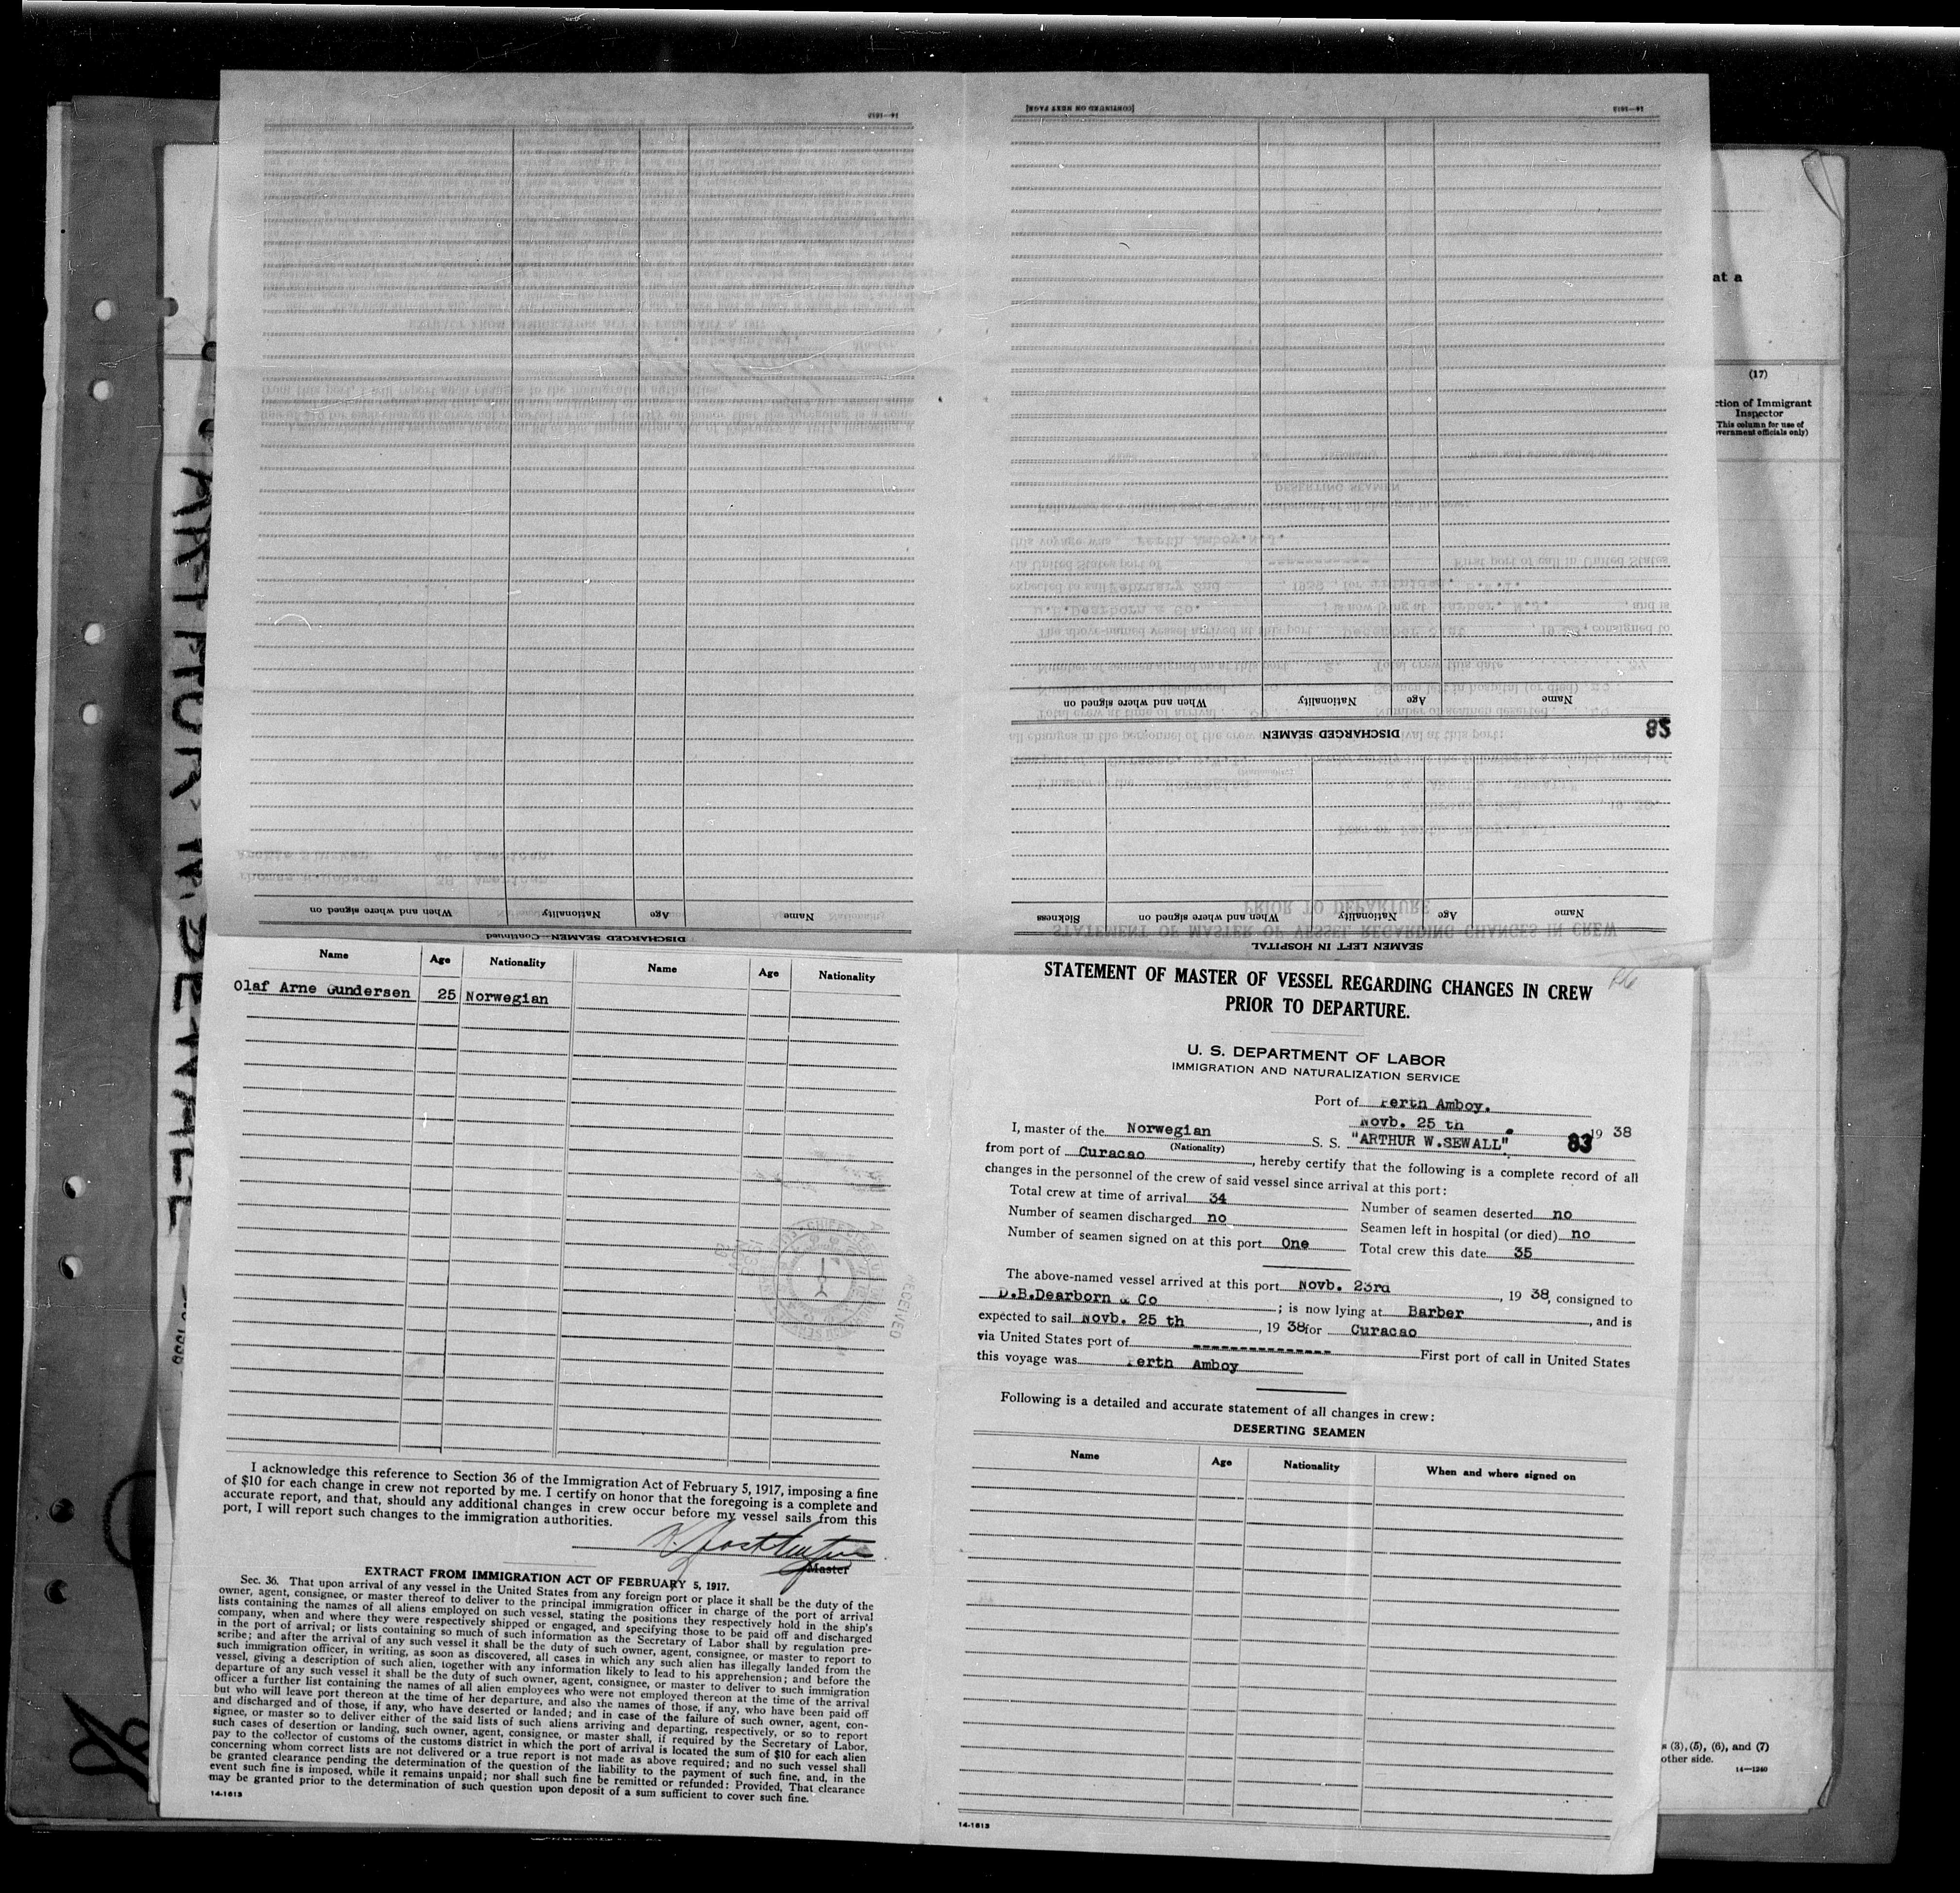 [CONTINUED ON NEXT PAGE]
14—1613
14—1613
Name
Age
Nationality
When and where signed on
DISCHARGED SEAMEN
83
Name
Age
Nationality
When and where signed on
Sickness
SEAMEN LEFT IN HOSPITAL
Name
Age
Nationality
When and where signed on
DISCHARGED SEAMEN—Continued
at a
(17)
ction of Immigrant
Inspector
This column for use of
vernment officials only)
(3), (5), (6), and (7)
other side.
14—1240
Name Age Nationality Name Age Nationality
Olaf Arne Gundersen 25 Norwegian
I acknowledge this reference to Section 36 of the Immigration Act of February 5, 1917, imposing a fine
of $10 for each change in crew not reported by me. I certify on honor that the foregoing is a complete and
accurate report, and that, should any additional changes in crew occur before my vessel sails from this
port, I will report such changes to the immigration authorities.
Master
EXTRACT FROM IMMIGRATION ACT OF FEBRUARY 5, 1917.
Sec. 36. That upon arrival of any vessel in the United States from any foreign port or place it shall be the duty of the
owner, agent, consignee, or master thereof to deliver to the principal immigration officer in charge of the port of arrival
lists containing the names of all aliens employed on such vessel, stating the positions they respectively hold in the ship's
company, when and where they were respectively shipped or engaged, and specifying those to be paid off and discharged
in the port of arrival; or lists containing so much of such information as the Secretary of Labor shall by regulation pre-
scribe; and after the arrival of any such vessel it shall be the duty of such owner, agent, consignee, or master to report to
such immigration officer, in writing, as soon as discovered, all cases in which any such alien has illegally landed from the
vessel, giving a description of such alien, together with any information likely to lead to his apprehension; and before the
departure of any such vessel it shall be the duty of such owner, agent, consignee, or master to deliver to such immigration
officer a further list containing the names of all alien employees who were not employed thereon at the time of the arrival
but who will leave port thereon at the time of her departure, and also the names of those, if any, who have been paid off
and discharged and of those, if any, who have deserted or landed; and in case of the failure of such owner, agent, con-
signee, or master so to deliver either of the said lists of such aliens arriving and departing, respectively, or so to report
such cases of desertion or landing, such owner, agent, consignee, or master shall, if required by the Secretary of Labor,
pay to the collector of customs of the customs district in which the port of arrival is located the sum of $10 for each alien
concerning whom correct lists are not delivered or a true report is not made as above required; and no such vessel shall
be granted clearance pending the determination of the question of the liability to the payment of such fine, and, in the
event such fine is imposed, while it remains unpaid; nor shall such fine be remitted or refunded: Provided, That clearance
may be granted prior to the determination of such question upon deposit of a sum sufficient to cover such fine.
14-1613
STATEMENT OF MASTER OF VESSEL REGARDING CHANGES IN CREW
PRIOR TO DEPARTURE.
U. S. DEPARTMENT OF LABOR
IMMIGRATION AND NATURALIZATION SERVICE
Port of Perth Amboy.
Novb. 25 th 19 38
I, master of the Norwegian S. S. "ARTHUR W.SEWALL" 83
(Nationality)
from port of Curacao, hereby certify that the following is a complete record of all
changes in the personnel of the crew of said vessel since arrival at this port:
Total crew at time of arrival 34
Number of seamen deserted no
Number of seamen discharged no
Seamen left in hospital (or died) no
Number of seamen signed on at this port One
Total crew this date 35
The above-named vessel arrived at this port Novb. 23rd, 19 38, consigned to
D.B.Dearborn & Co; is now lying at Barber, and is
expected to sail Novb. 25 th, 19 38 for Curacao
via United States port of --------------- First port of call in United States
this voyage was Perth Amboy
Following is a detailed and accurate statement of all changes in crew:
DESERTING SEAMEN
Name Age Nationality When and where signed on
14-1613